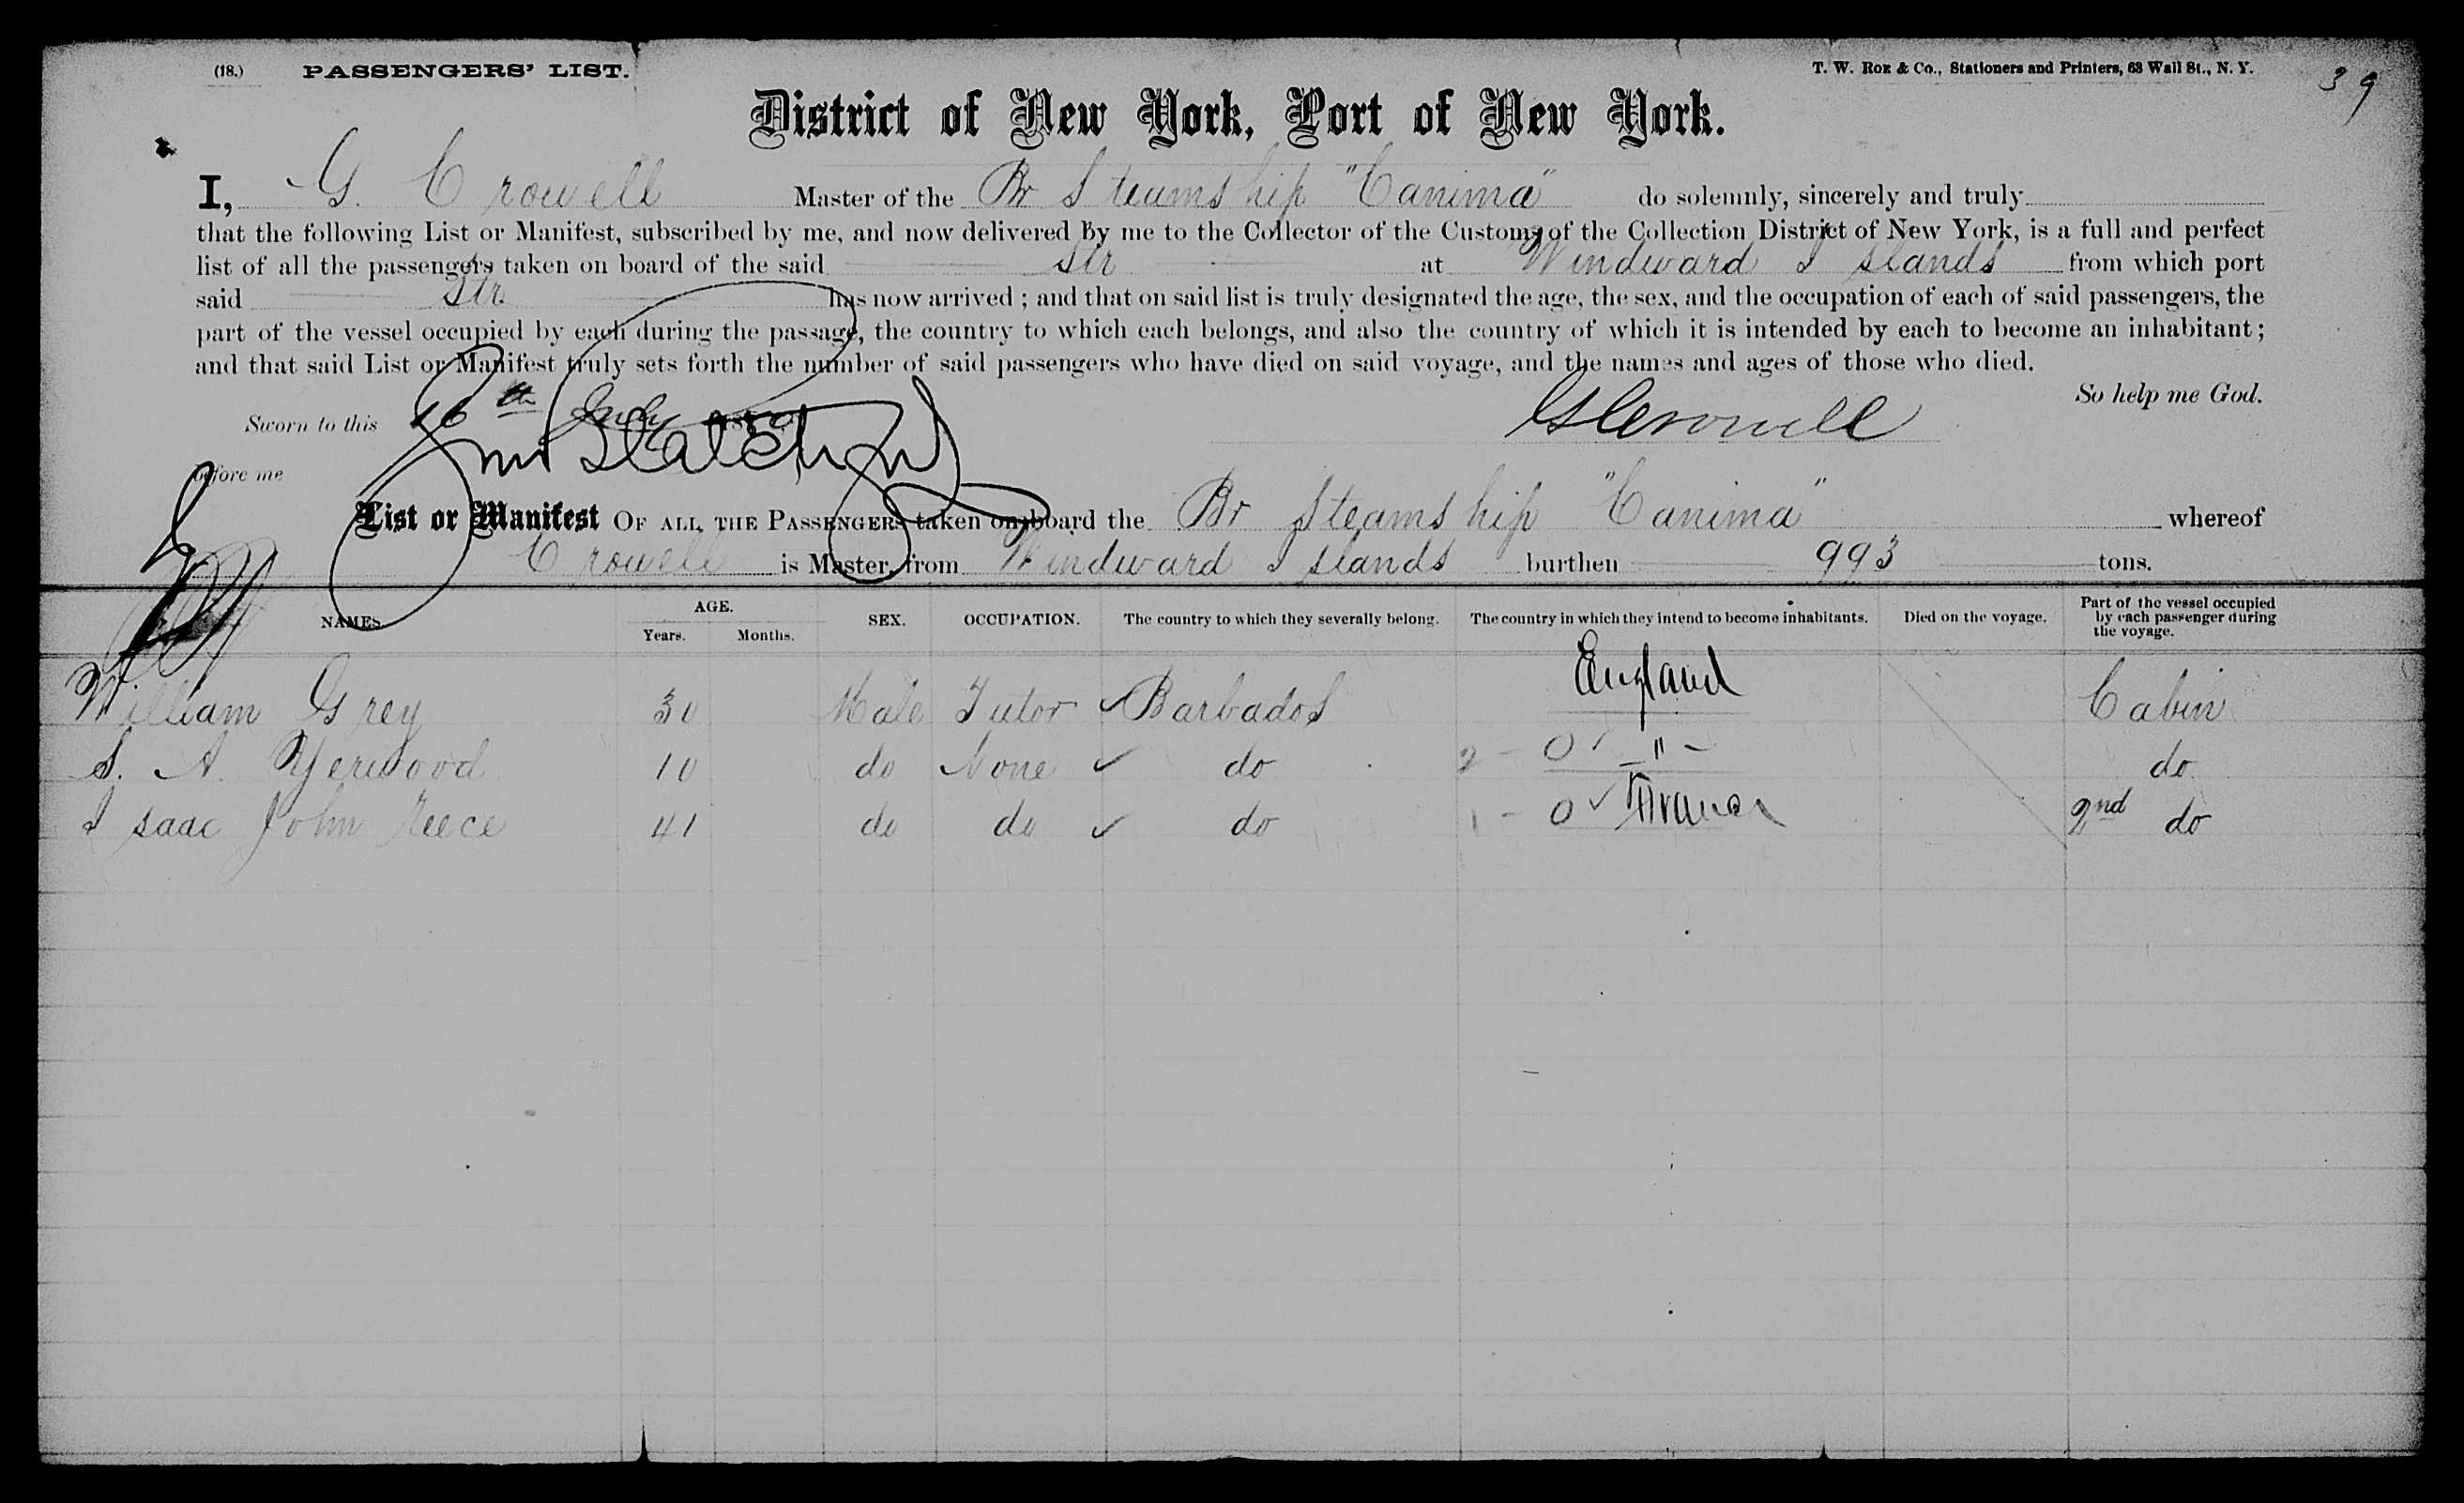 (18.) PASSENGERS' LIST. T. W. Roe & Co., Stationers and Printers, 63 Wall St., N. Y. 39
District of New York, Port of New York.
I, G. Crowell Master of the Br Steamship "Canima" do solemnly, sincerely and truly
that the following List or Manifest, subscribed by me, and now delivered by me to the Collector of the Customs of the Collection District of New York, is a full and perfect
list of all the passengers taken on board of the said Str at Windward Islands from which port
said Str. has now arrived ; and that on said list is truly designated the age, the sex, and the occupation of each of said passengers, the
part of the vessel occupied by each during the passage, the country to which each belongs, and also the country of which it is intended by each to become an inhabitant ;
and that said List or Manifest truly sets forth the number of said passengers who have died on said voyage, and the names and ages of those who died.
So help me God.
Sworn to this 16th July G Crowell
before me
List or Manifest OF ALL THE PASSENGERS taken on board the Br Steamship "Canima" whereof
Crowell is Master, from Windward Islands burthen 993 tons.
NAMES. AGE. Years. Months. SEX. OCCUPATION. The country to which they severally belong. The country in which they intend to become inhabitants. Died on the voyage. Part of the vessel occupied by each passenger during the voyage.
William Grey 30 Male Tutor ✓ Barbados England Cabin
S. A. Yerwood 10 do None ✓ do 2 - 0 ✓ " - do
Isaac John Reece 41 do do ✓ do 1 - 0 ✓ France 2nd do